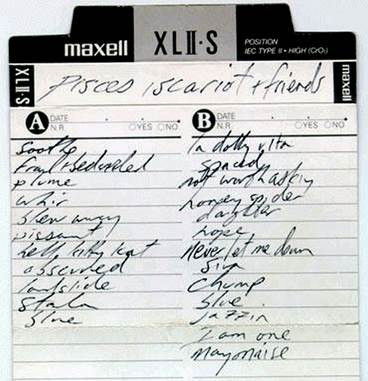 maxell XLII·S POSITION
IEC TYPE II • HIGH (CrO₂)
XLII·S
maxell
Pisces iscariot + friends
A DATE
N.R. YES NO
Soothe
Frail + Bedazzled
plume
whir
blew away
pissant
hello kitty kat
obscured
landslide
Starla
blue
B DATE
N.R. YES NO
la dolly vita
spaced
not worth asking
honey spider
daughter
hope
Never let me down
Chump
blue
Jazzin
I am one
mayonaise